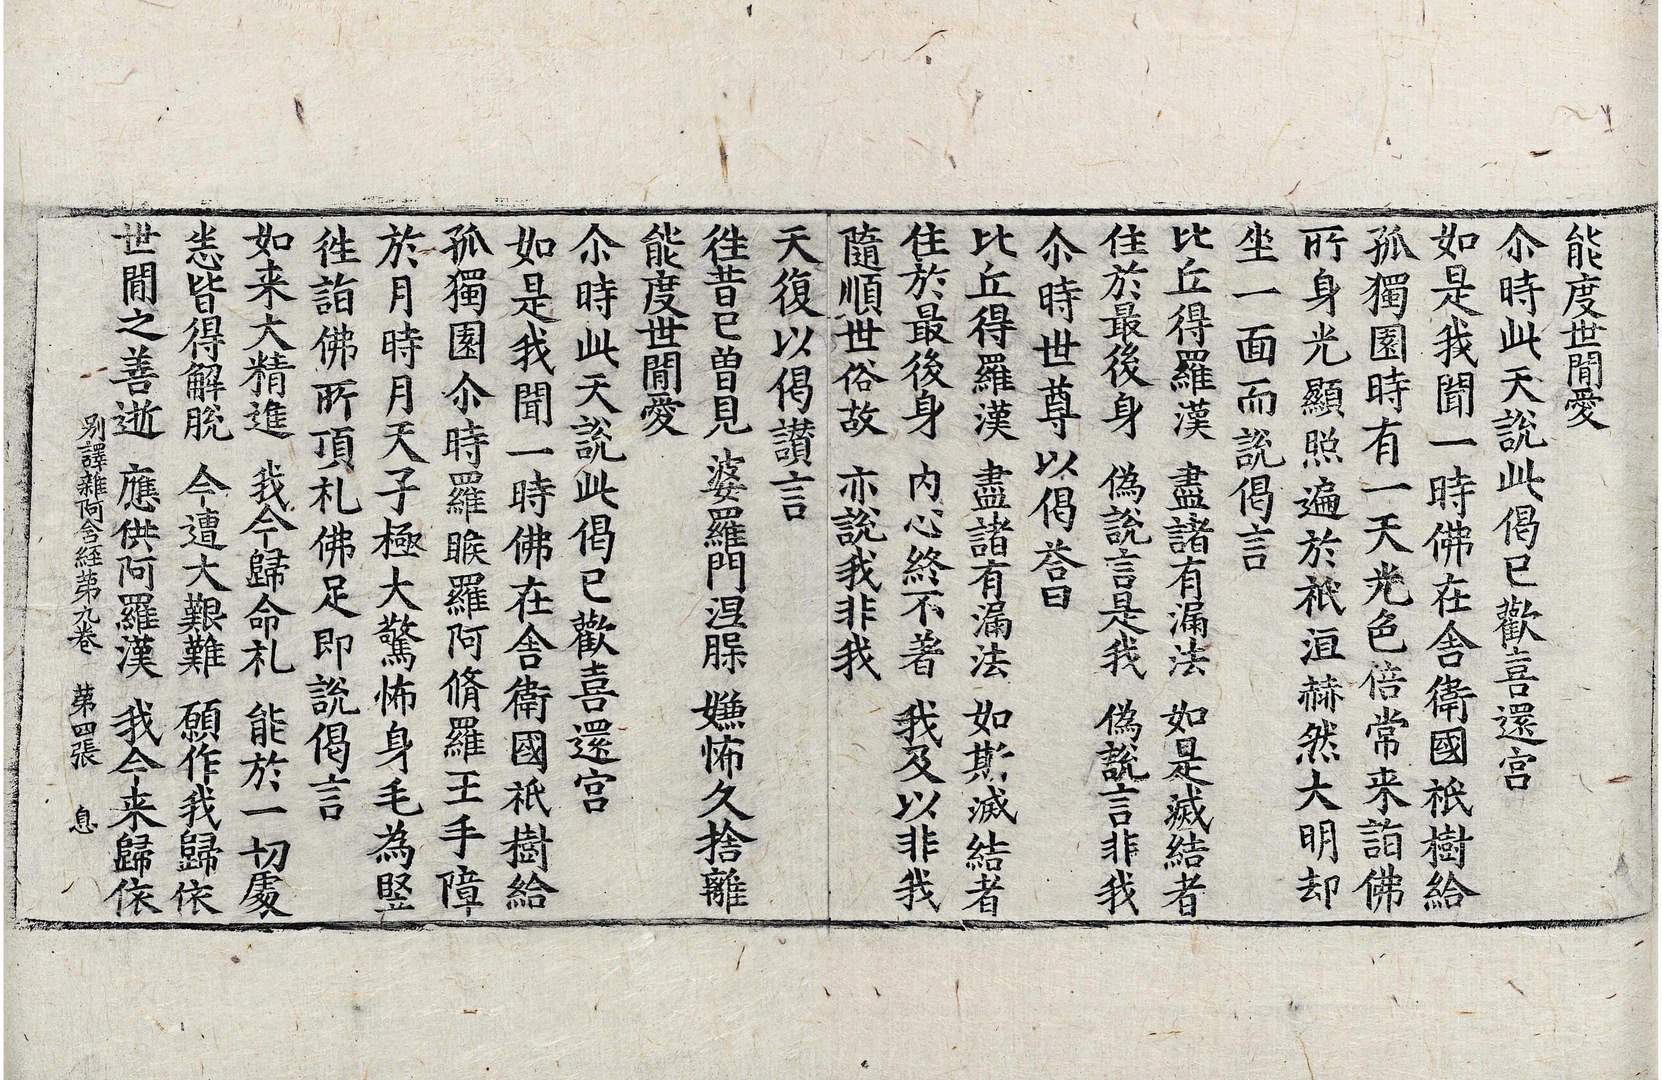 能度世閒愛
尒時此天說此偈已歡喜還宫
如是我聞一時佛在舍衛國祇樹給
孤獨園時有一天光色倍常来詣佛
所身光顯照遍於祇洹赫然大明却
坐一面而說偈言
比丘得羅漢 盡諸有漏法 如是滅結者
住於最後身 偽說言是我 偽說言非我
尒時世尊以偈荅曰
比丘得羅漢 盡諸有漏法 如斯滅結者
住於最後身 内心終不著 我及以非我
隨順世俗故 亦說我非我
天復以偈讃言
徃昔已曾見 婆羅門涅槃 嫌怖久捨離
能度世閒愛
尒時此天說此偈已歡喜還宫
如是我聞一時佛在舍衛國祇樹給
孤獨園尒時羅睺羅阿脩羅王手障
於月時月天子極大驚怖身毛為竪
徃詣佛所頂札佛足即說偈言
如来大精進 我今歸命札 能於一切處
悉皆得解脫 今遭大艱難 願作我歸依
世閒之善逝 應供阿羅漢 我今来歸依
别譯雜阿含経苐九卷 苐四張 息